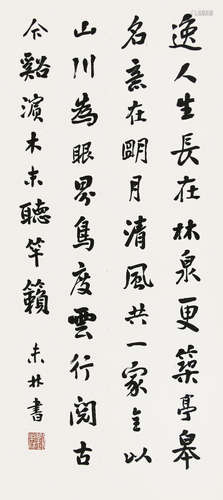 逸人生長在林泉更築亭皋
名意在明月清風共一家全以
山川為眼界鳥度雲行閱古
今谿濱木末聽竽籟
未林書